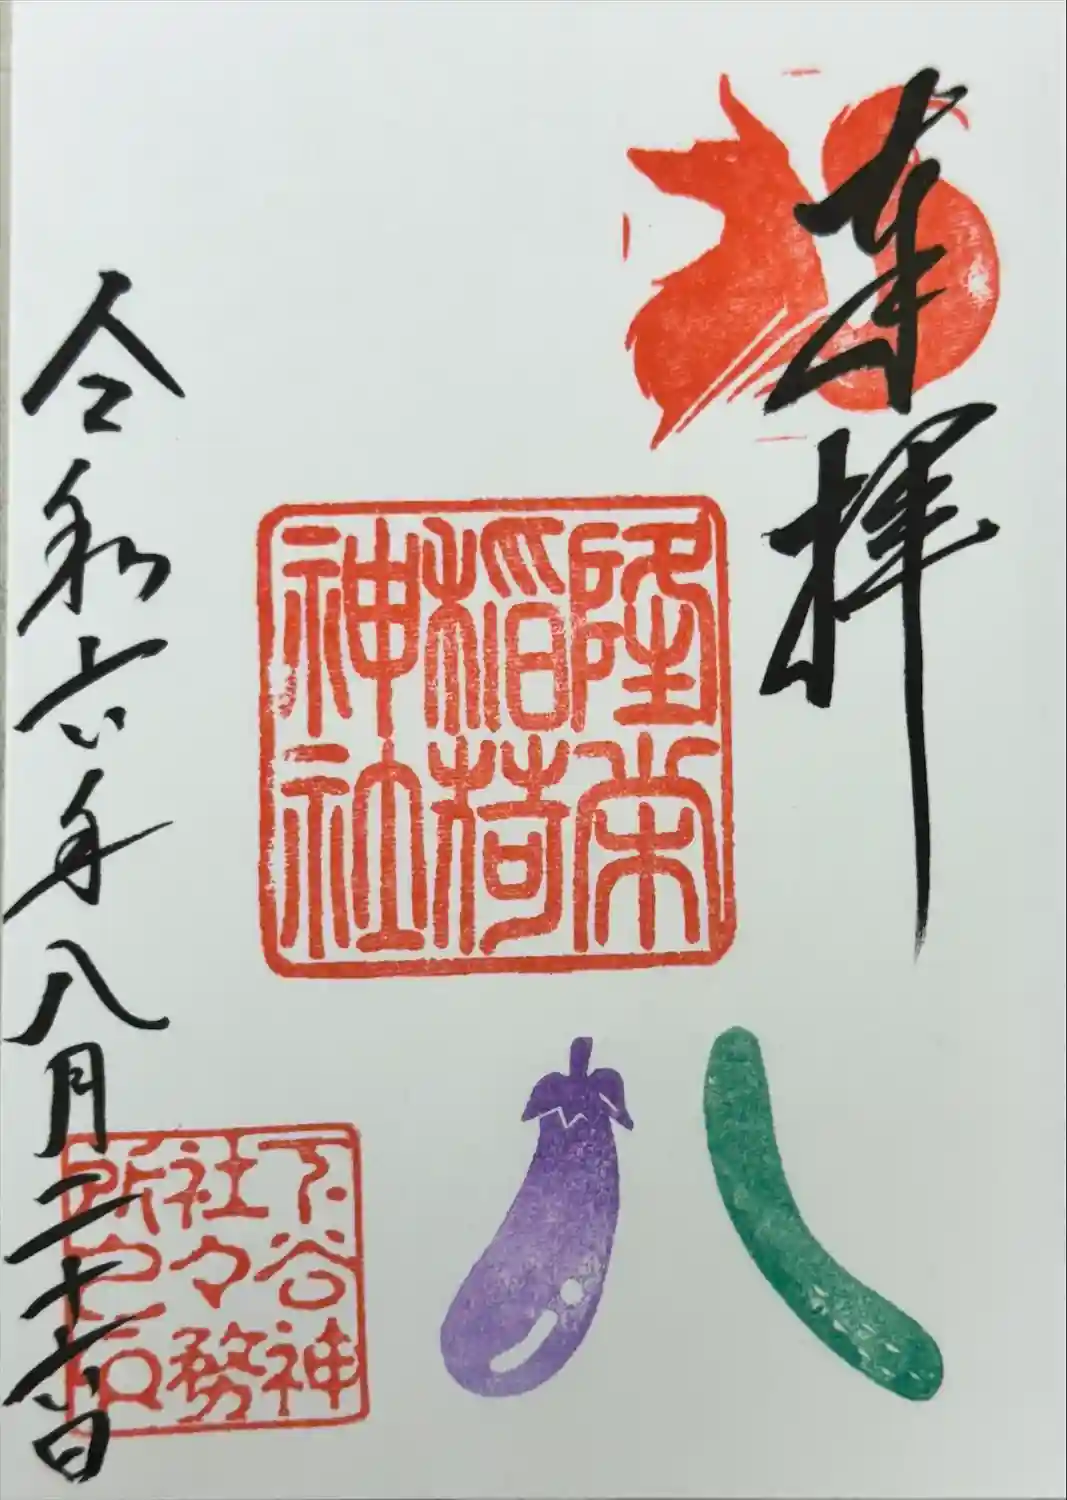 奉拝
隆栄
稲荷
神社
下谷神
社々務
所之印
令和六年八月二十六日